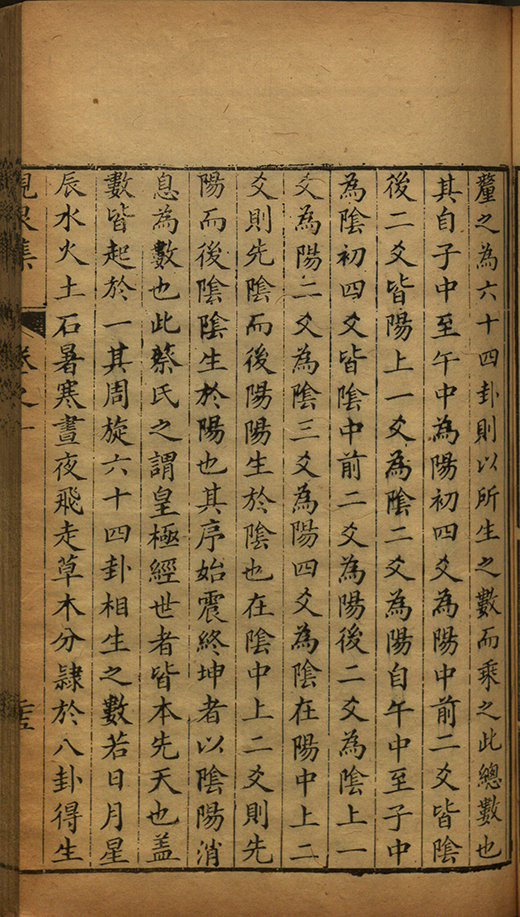 釐之為六十四卦則以所生之數而乘之此總數也
其自子中至午中為陽初四爻為陽中前二爻皆陰
後二爻皆陽上一爻為陰二爻為陽自午中至子中
為陰初四爻皆陰中前二爻為陽後二爻為陰上一
爻為陽二爻為陰三爻為陽四爻為陰在陽中上二
爻則先陰而後陽陽生於陰也在陰中上二爻則先
陽而後陰陰生於陽也其序始震終坤者以陰陽消
息為數也此蔡氏之謂皇極經世者皆本先天也蓋
數皆起於一其周旋六十四卦相生之數若日月星
辰水火土石暑寒晝夜飛走草木分隸於八卦得生
卷之一